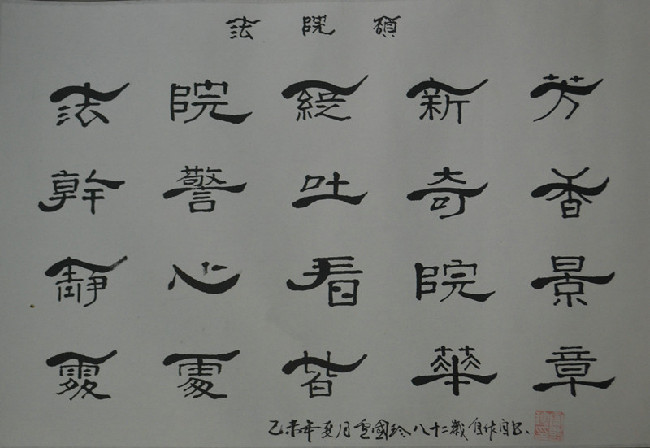 法院頌
法院綻新芳
幹警吐奇香
靜心看院景
處處皆華章
乙未年夏月 國 八十二歲自作自书